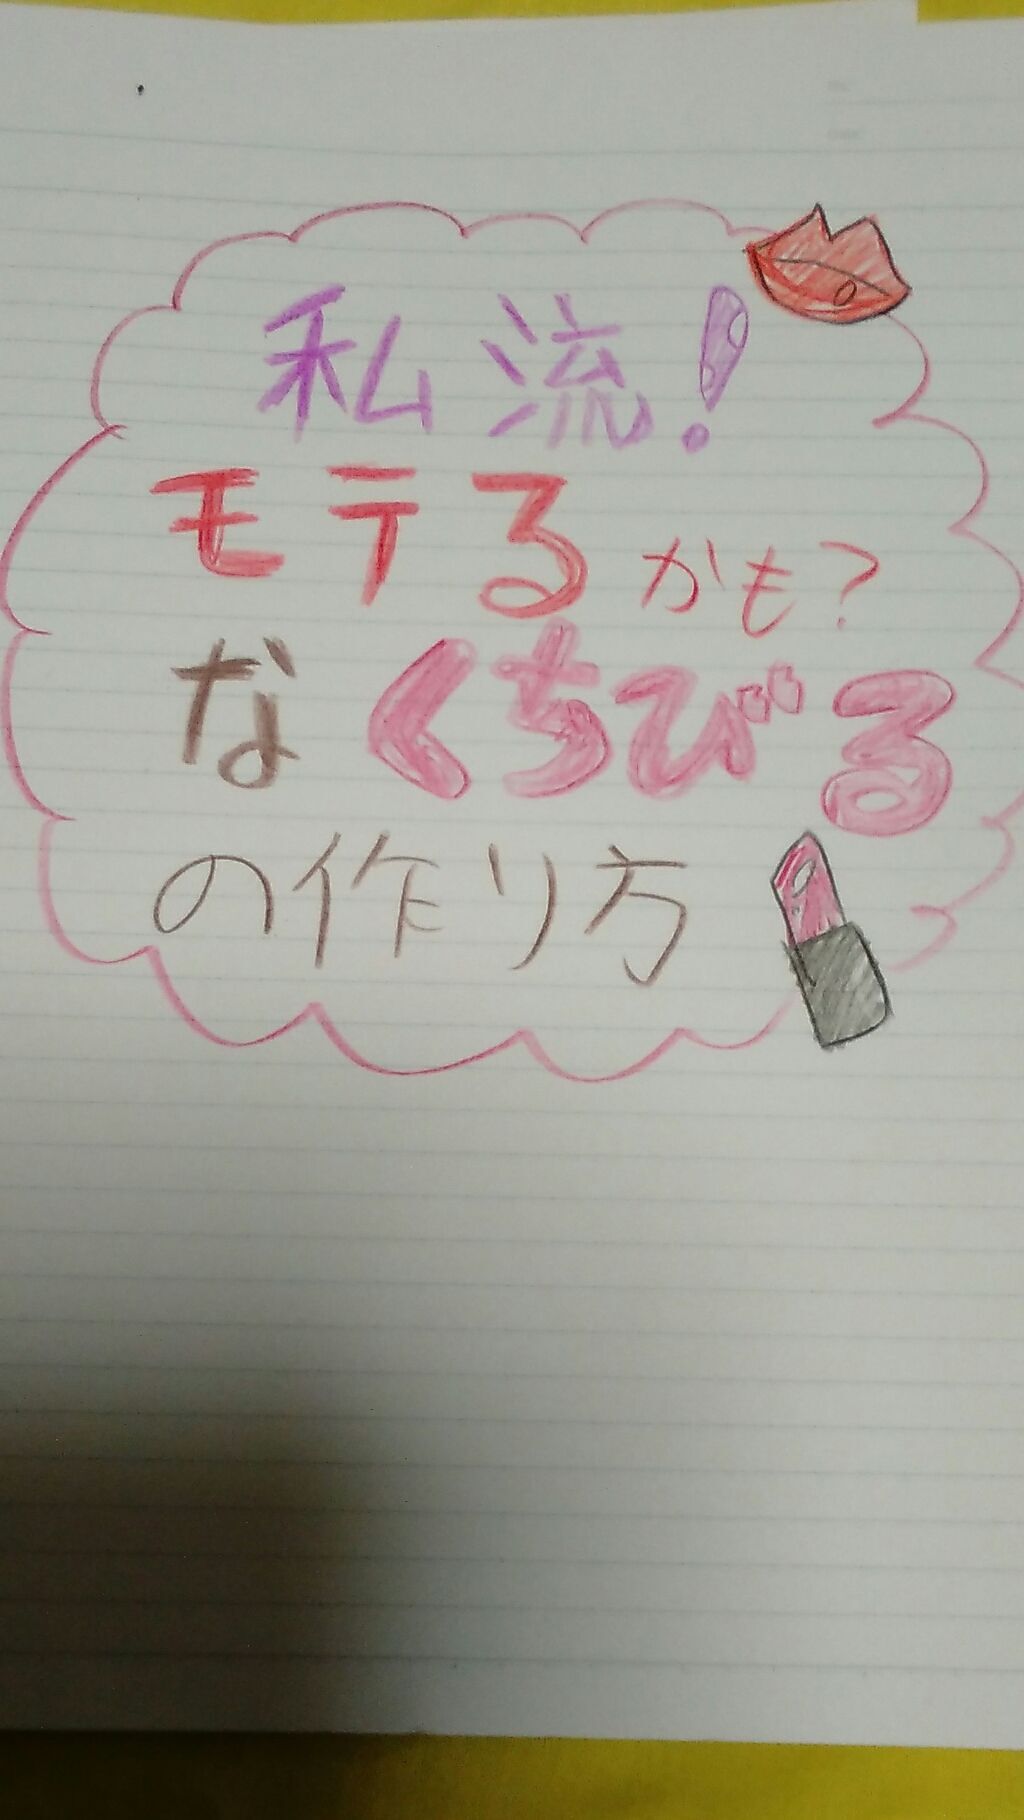 私流!
モテるかも?
なくちびる
の作り方